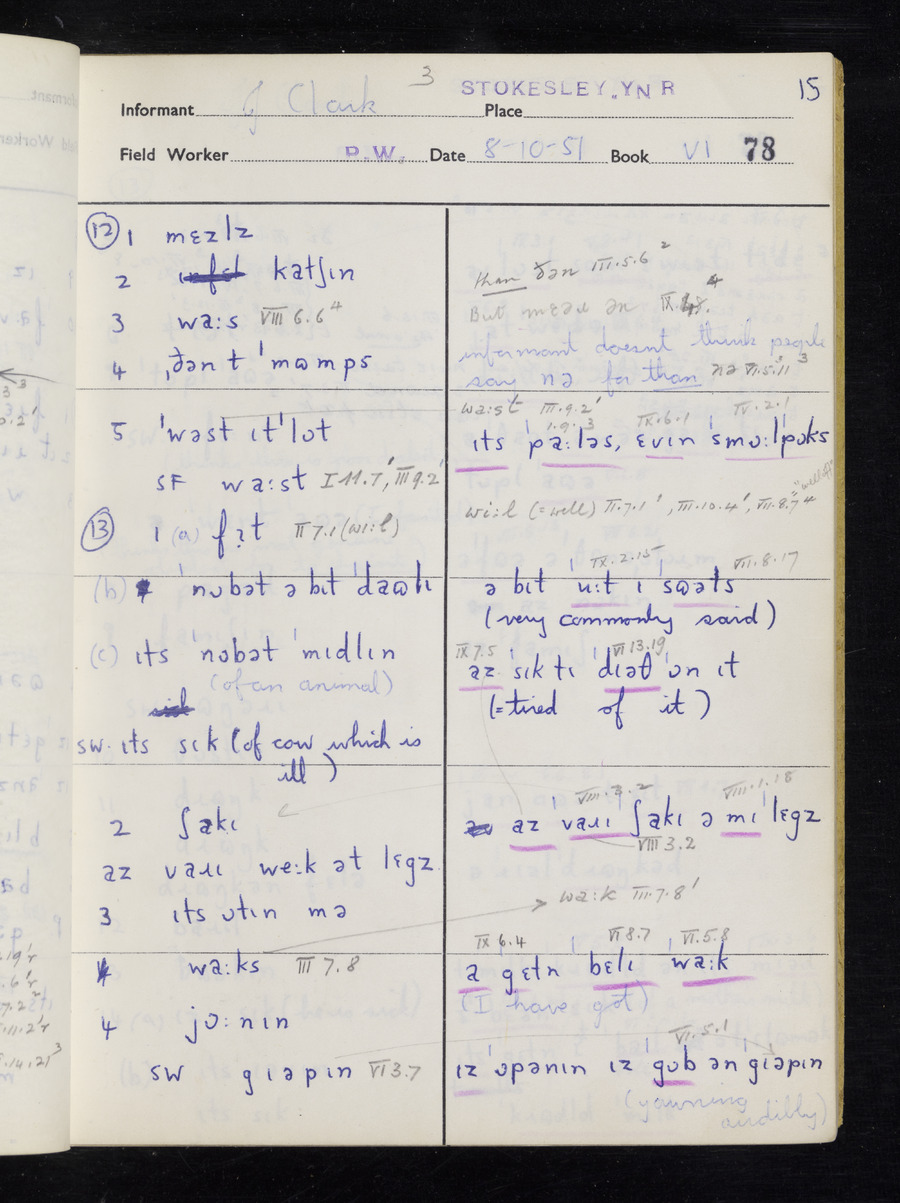 3
STOKESLEY, YN R
15
Informant J Clark Place
Field Worker P.W. Date 8-10-51 Book VI 78
12 1 mɛzlz
2 katʃɪn
3 wa:s VIII 6.6⁴
4 ˌðən t ˈmɷmps
5 ˈwəst ɪt ˈlʊt
SF wa:st I 11.7', III 9.2'
13 1 (a) fɪt II 7.1 (wi:l)
(b) ˈnʊbət ə bɪt ˈdaɷlɪ
(c) ɪts ˈnʊbət ˈmɪdlɪn
(of an animal)
SW. ɪts sɪk (of cow which is
ill)
2 ʃakɪ
az vaɹɪ we:k ət lɛgz
3 ɪts ʊtɪn mə
wa:ks III 7.8
4 jɔ:nɪn
SW gɪəpɪn VI 3.7
than ðən III.5.6²
But mɛəɹ ən
informant doesnt think people
say nə for than nə VI.5.11³
wa:st III.9.2'
1.9.3 IX.6.1 IV.2.1
ɪts ˈpa:ləs, ɛvɪn ˈsmɔ:lˈpʊks
wi:l (=well) II.7.1', III.10.4', VII.8.7⁴ "well off"
IX.2.15 VII.8.17
ə bɪt u:t ɪ sɷəts
(very commonly said)
IX 7.5 VI 13.19
az sɪk tɪ ˈdɪəθ ˈʊn ɪt
(=tired of it)
VIII.3.2 VIII.1.18
az vaɹɪ ʃakɪ ə mɪ lɛgz
VIII 3.2
wa:k III.7.8'
IX 6.4 VI 8.7 VI.5.8
a gɛtn bɛlɪ wa:k
(I have got)
VI.5.1
ɪz ˈʊpənɪn ɪz gɔb ən gɪəpɪn
(yawning
audibly)